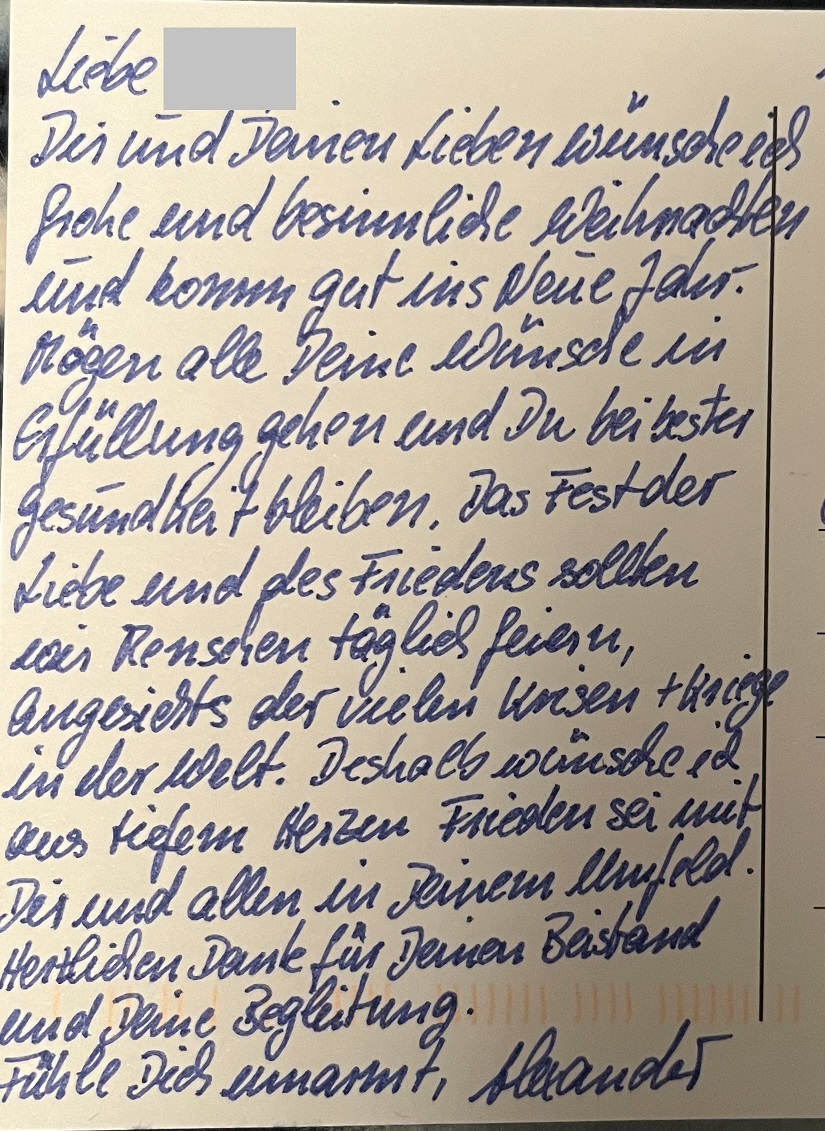 Liebe
Dir und Deinen Lieben wünsche ich
frohe und besinnliche Weihnachten
und komm gut ins Neue Jahr.
Mögen alle Deine Wünsche in
Erfüllung gehen und Du bei bester
Gesundheit bleiben. Das Fest der
Liebe und des Friedens sollten
wir Menschen täglich feiern,
Angesichts der vielen Krisen + Kriege
in der Welt. Deshalb wünsche ich
aus tiefem Herzen Frieden sei mit
Dir und allen in Deinem Umfeld.
Herzlichen Dank für Deinen Beistand
und Deine Begleitung.
Fühle Dich umarmt, Alexander